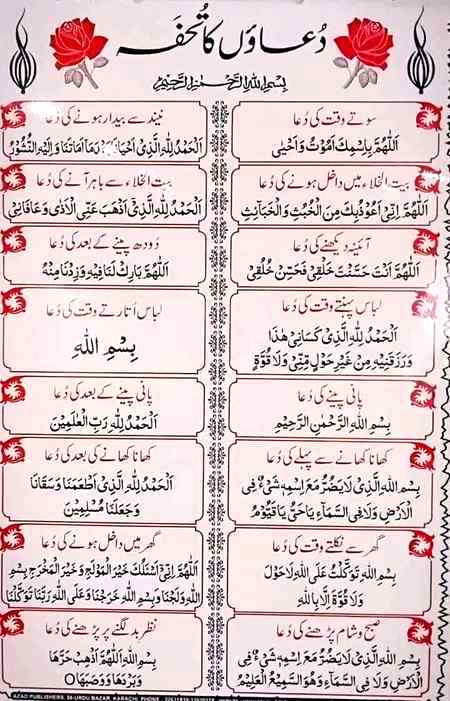 دُعاؤں کا تُحفہ
بِسْمِ اللهِ الرَّحْمٰنِ الرَّحِيْمِ
سوتے وقت کی دُعا
اَللّٰهُمَّ بِاسْمِكَ اَمُوْتُ وَاَحْيٰى
نیند سے بیدار ہونے کی دُعا
اَلْحَمْدُ لِلّٰهِ الَّذِىْ اَحْيَانَا بَعْدَ مَا اَمَاتَنَا وَاِلَيْهِ النُّشُوْرُ
بیت الخلاء میں داخل ہونے کی دُعا
اَللّٰهُمَّ اِنِّىْ اَعُوْذُ بِكَ مِنَ الْخُبُثِ وَالْخَبَآئِثِ
بیت الخلاء سے باہر آنے کی دُعا
اَلْحَمْدُ لِلّٰهِ الَّذِىْ اَذْهَبَ عَنِّى الْاَذٰى وَعَافَانِىْ
آئینہ دیکھنے کی دُعا
اَللّٰهُمَّ اَنْتَ حَسَّنْتَ خَلْقِىْ فَحَسِّنْ خُلُقِىْ
دُودھ پینے کے بعد کی دُعا
اَللّٰهُمَّ بَارِكْ لَنَا فِيْهِ وَزِدْنَا مِنْهُ
لباس پہنتے وقت کی دُعا
اَلْحَمْدُ لِلّٰهِ الَّذِىْ كَسَانِىْ هٰذَا
وَرَزَقَنِيْهِ مِنْ غَيْرِ حَوْلٍ مِّنِّىْ وَلَا قُوَّةٍ
لباس اُتارتے وقت کی دُعا
بِسْمِ اللهِ
پانی پینے کی دُعا
بِسْمِ اللهِ الرَّحْمٰنِ الرَّحِيْمِ
پانی پینے کے بعد کی دُعا
اَلْحَمْدُ لِلّٰهِ رَبِّ الْعٰلَمِيْنَ
کھانا کھانے سے پہلے کی دُعا
بِسْمِ اللهِ الَّذِىْ لَا يَضُرُّ مَعَ اسْمِهٖ شَىْءٌ فِى
الْاَرْضِ وَلَا فِى السَّمَآءِ يَا حَىُّ يَا قَيُّوْمُ
کھانا کھانے کی بعد کی دُعا
اَلْحَمْدُ لِلّٰهِ الَّذِىْ اَطْعَمَنَا وَسَقَانَا
وَجَعَلَنَا مُسْلِمِيْنَ
گھر سے نکلتے وقت کی دُعا
بِسْمِ اللهِ تَوَكَّلْتُ عَلَى اللهِ لَا حَوْلَ
وَلَا قُوَّةَ اِلَّا بِاللهِ
گھر میں داخل ہونے کی دُعا
اَللّٰهُمَّ اِنِّىْ اَسْئَلُكَ خَيْرَ الْمَوْلَجِ وَخَيْرَ الْمَخْرَجِ بِسْمِ
اللهِ وَلَجْنَا وَبِسْمِ اللهِ خَرَجْنَا وَعَلَى اللهِ رَبِّنَا تَوَكَّلْنَا
صبح و شام پڑھنے کی دُعا
بِسْمِ اللهِ الَّذِىْ لَا يَضُرُّ مَعَ اسْمِهٖ شَىْءٌ فِى
الْاَرْضِ وَلَا فِى السَّمَآءِ وَهُوَ السَّمِيْعُ الْعَلِيْمُ
نظر بد لگنے پر پڑھنے کی دُعا
بِسْمِ اللهِ اَللّٰهُمَّ اَذْهِبْ حَرَّهَا
وَبَرْدَهَا وَوَصَبَهَا
AZAD PUBLISHERS, 36-URDU BAZAR, KARACHI. PHONE